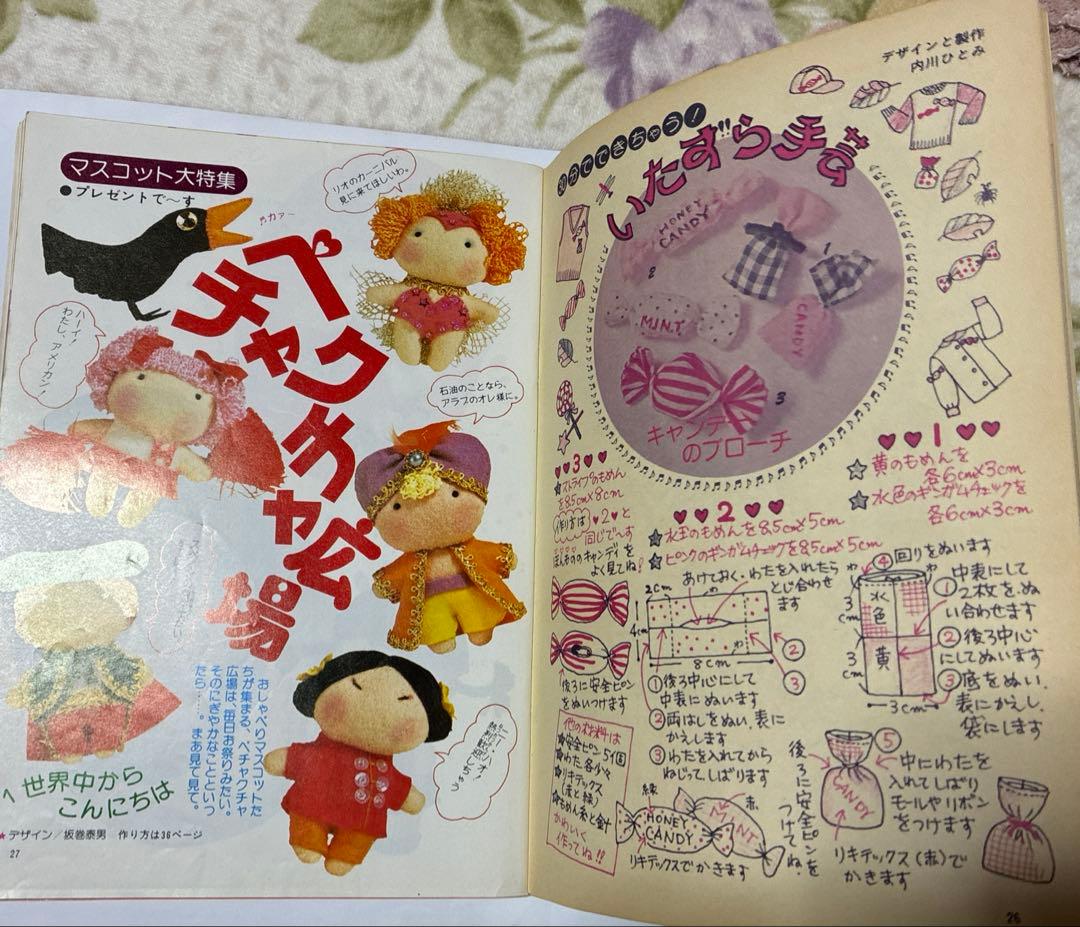 マスコット大特集
●プレゼントで〜す
カァー
ペ
チャクチャ広
場
リオのカーニバル
見に来てほしいわ。
ハーイ!
わたし、アメリカン!
石油のことなら、
アラブのオレ様に。
おしゃべりマスコットた
ちが集まる、ペチャクチャ
広場は、毎日お祭りみたい。
そのにぎやかなことといっ
たら……。まあ見て見て。
世界中から
こんにちは
★デザイン/坂巻泰男 作り方は36ページ
27
デザインと製作
内川ひとみ
30分でできちゃう!
いたずら手芸
HONEY
CANDY
2
1
MINT
CANDY
3
キャンディ
のブローチ
♥♥1♥♥
☆黄のもめんを
各6cm×3cm
☆水色のギンガムチェックを
各6cm×3cm
♥♥2♥♥
★水玉のもめんを8,5cm×5cm
★ピンクのギンガムチェックを8,5cm×5cm
♥♥3♥♥
★ストライプのもめん
を8,5cm×8cm
作り方は♥2♥と
同じで〜す
ほんもののキャンディを
よく見てね!
後ろに安全ピン
をぬいつけます
あけておく・わたを入れたら
とじ合わせ
ます
2cm
4cm
わ
8cm
②
③
①後ろ中心にして
中表にぬいます
②両はしをぬい、表に
かえします
③わたを入れてから
ねじってしばります
緑
赤
HONEY
CANDY
MINT
リキテックスでかきます
他の材料は
★安全ピン5個
★わた各少々
★リキテックス
(赤と緑)
★もめん糸と針
かわいく
作ってね!!
④回りをぬいます
わ
わ
水色
黄
3cm
3cm
3cm
①中表にして
2枚をぬ
い合わせます
②後ろ中心
にしてぬいます
③底をぬい、
表にかえし、
袋にします
⑤中にわたを
入れてしばり
モールやリボン
をつけます
後ろに安全ピンを
つけてね。
CANDY
リキテックス(赤)で
かきます
26